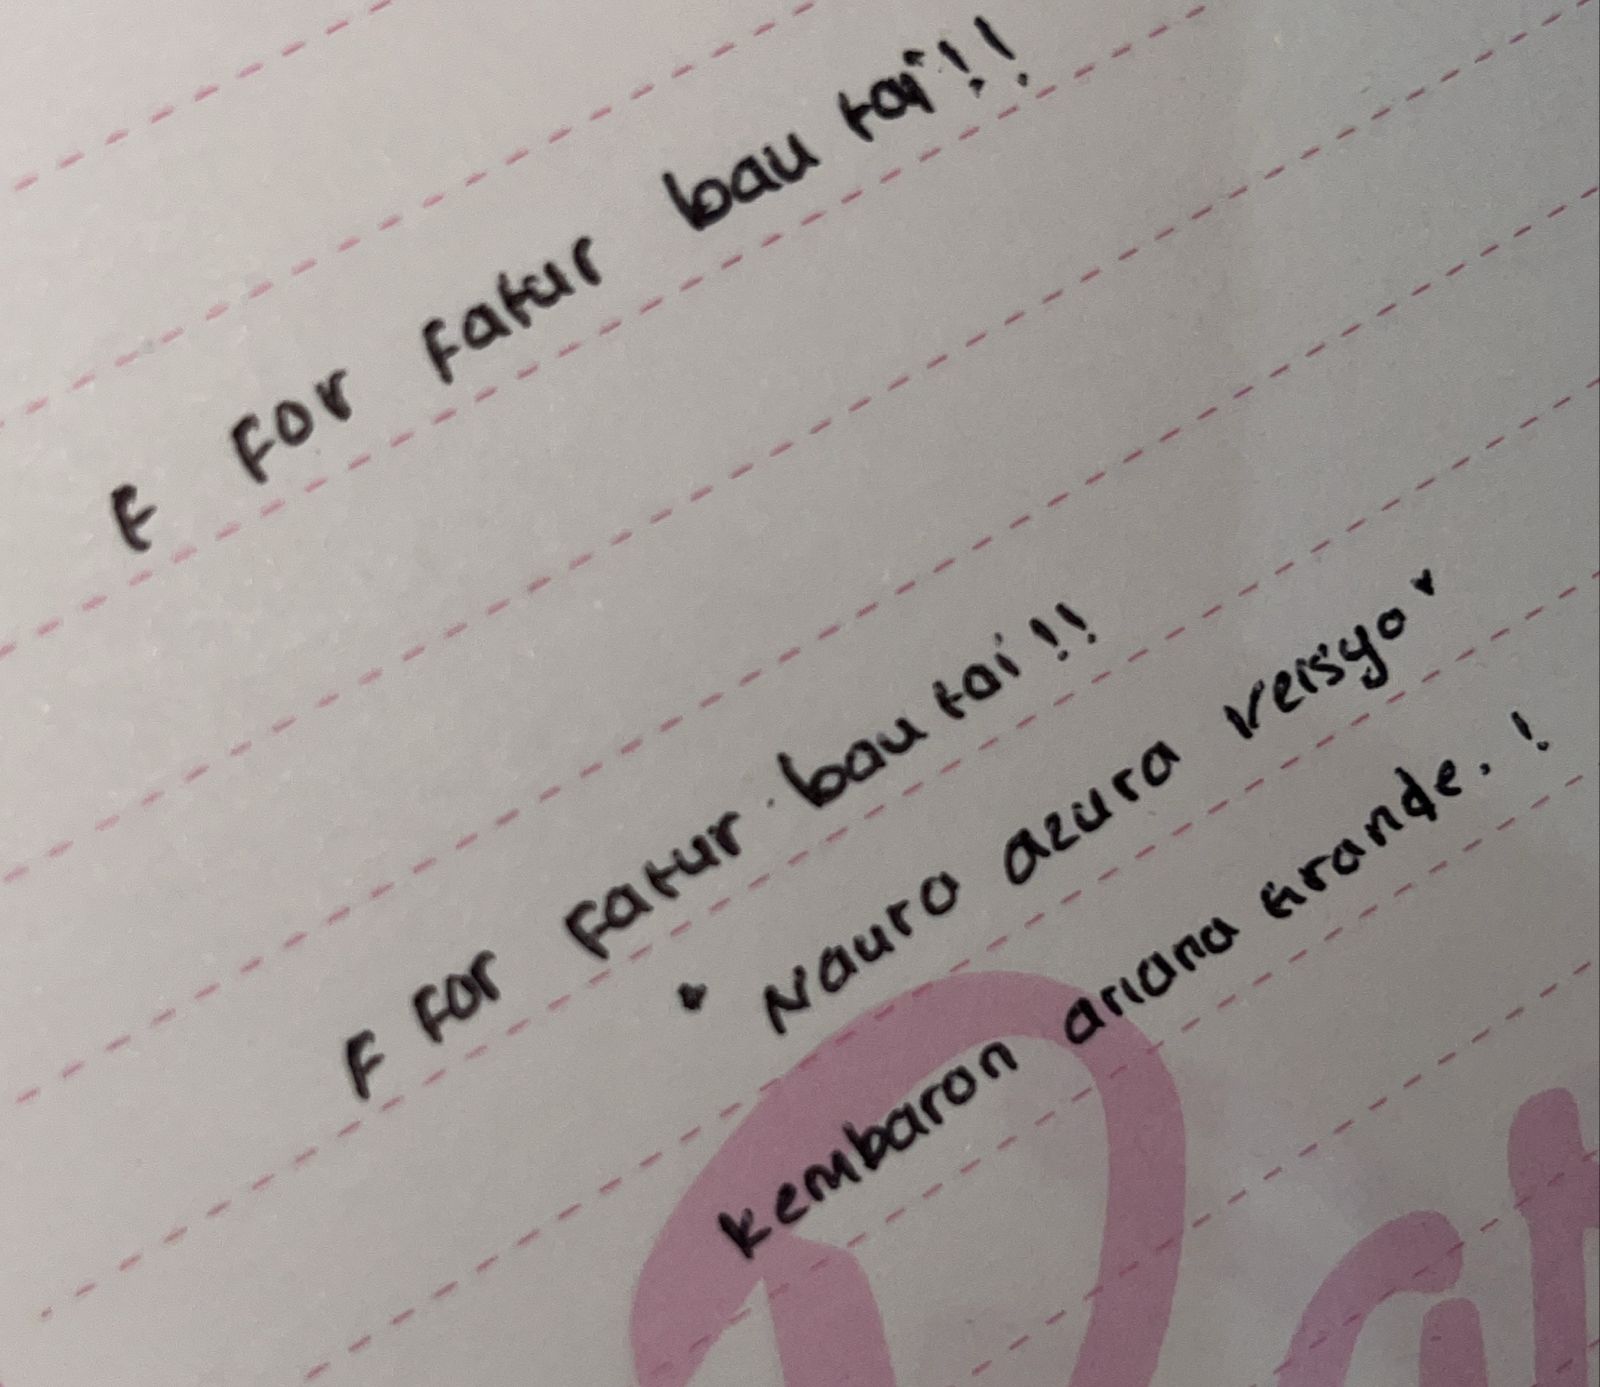 F For Fatur bau tai!!
F For Fatur bau tai!!
Naura azura reisya
kembaran ariana Grande. !